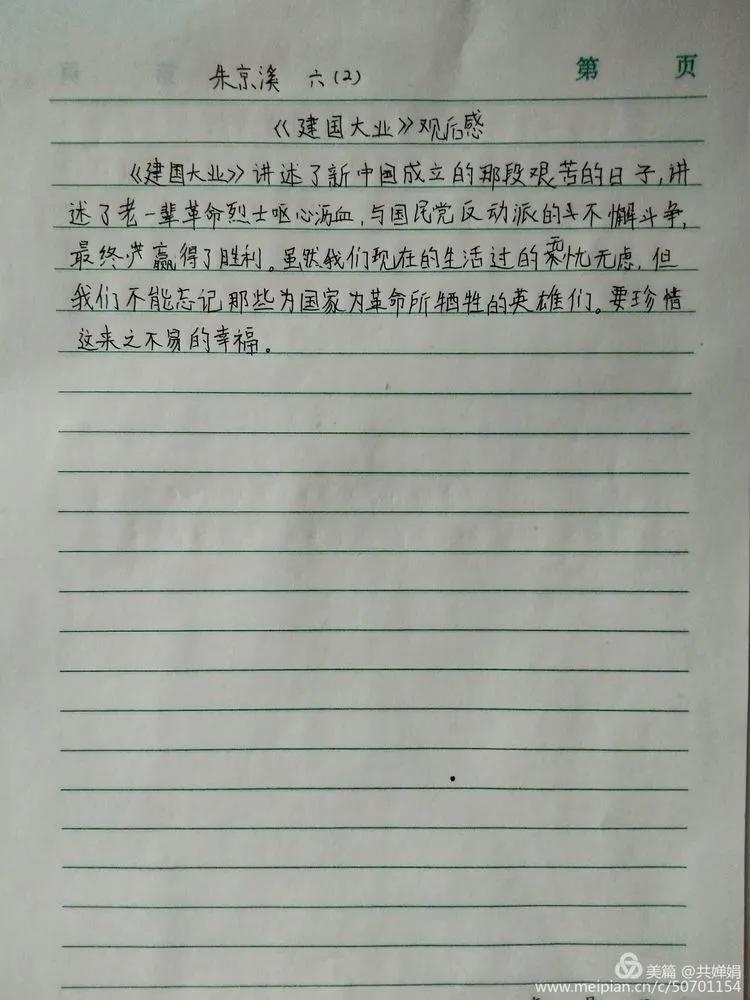 第 页
朱京溪 六(2)
《建国大业》观后感
《建国大业》讲述了新中国成立的那段艰苦的日子,讲
述了老一辈革命烈士呕心沥血,与国民党反动派的不懈斗争,
最终赢得了胜利。虽然我们现在的生活过的忧无虑,但
我们不能忘记那些为国家为革命所牺牲的英雄们。要珍惜
这来之不易的幸福。
美篇 @共婵娟
www.meipian.cn/c/50701154